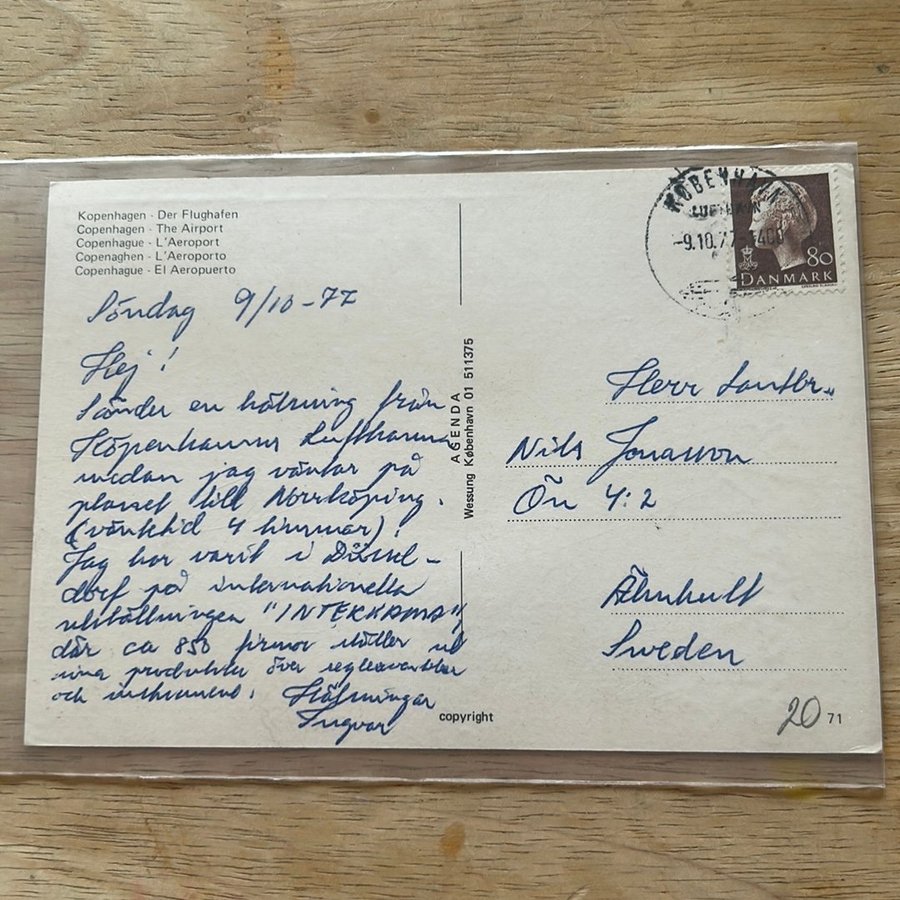 Kopenhagen - Der Flughafen
Copenhagen - The Airport
Copenhague - L'Aeroport
Copenaghen - L'Aeroporto
Copenhague - El Aeropuerto
Söndag 9/10-77
Hej!
Sänder en hälsning från
Köpenhamns Lufthamn
medan jag väntar på
planet till Norrköping.
(väntetid 4 timmar)!
Jag har varit i Düssel-
dorf på internationella
utställningen "INTERKAMA",
där ca 850 firmor ställer ut
sina produkter över
och instrument. Hälsningar
Ingvar
AGENDA
Wessung København 01 511375
copyright
KØBENHAVN
LUFTHAVN
-9.10.77-1400
80
DANMARK
Herr Lantbr.
Nils Jonasson
Ön 4:2
Älmhult
Sweden
20
71